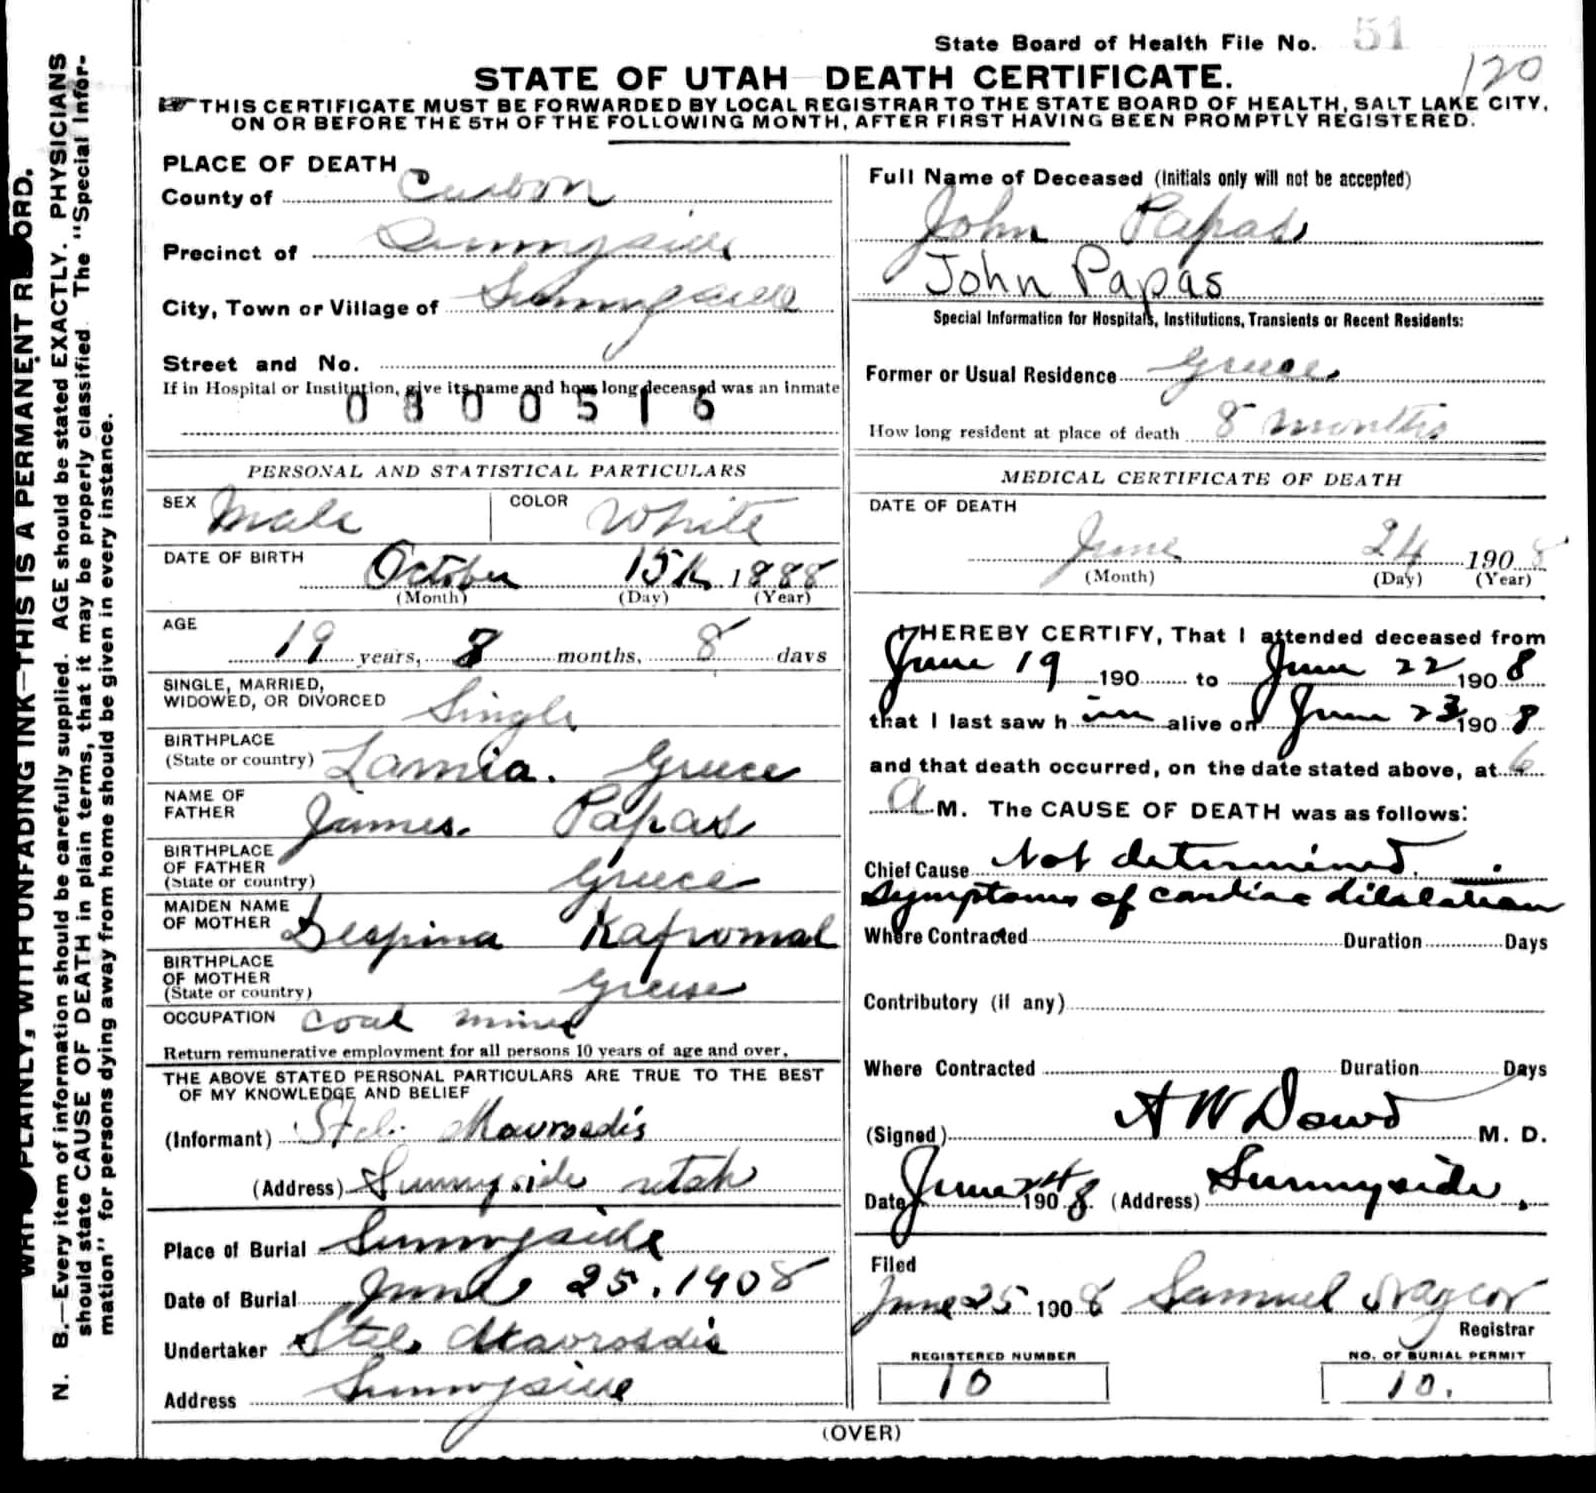 State Board of Health File No. 51
120
STATE OF UTAH DEATH CERTIFICATE.
THIS CERTIFICATE MUST BE FORWARDED BY LOCAL REGISTRAR TO THE STATE BOARD OF HEALTH, SALT LAKE CITY,
ON OR BEFORE THE 5TH OF THE FOLLOWING MONTH, AFTER FIRST HAVING BEEN PROMPTLY REGISTERED.
PLAINLY, WITH UNFADING INK—THIS IS A PERMANENT RECORD.
N. B.—Every item of information should be carefully supplied. AGE should be stated EXACTLY. PHYSICIANS
should state CAUSE OF DEATH in plain terms, that it may be properly classified. The "Special Infor-
mation" for persons dying away from home should be given in every instance.
PLACE OF DEATH
County of Carbon
Precinct of Sunnyside
City, Town or Village of Sunnyside
Street and No.
If in Hospital or Institution, give its name and how long deceased was an inmate
0800516
PERSONAL AND STATISTICAL PARTICULARS
SEX Male COLOR White
DATE OF BIRTH
October 15th 1888
(Month) (Day) (Year)
AGE
19 years, 8 months, 8 days
SINGLE, MARRIED,
WIDOWED, OR DIVORCED Single
BIRTHPLACE
(State or country) Lamia. Greece
NAME OF
FATHER James. Papas
BIRTHPLACE
OF FATHER
(State or country) Greece
MAIDEN NAME
OF MOTHER Despina Kafromal
BIRTHPLACE
OF MOTHER
(State or country) Greese
OCCUPATION coal miner
Return remunerative employment for all persons 10 years of age and over.
THE ABOVE STATED PERSONAL PARTICULARS ARE TRUE TO THE BEST
OF MY KNOWLEDGE AND BELIEF
(Informant) Stel. Mavrosdis
(Address) Sunnyside utah
Place of Burial Sunnyside
Date of Burial June 25. 1908
Undertaker Stel. Mavrosdis
Address Sunnyside
Full Name of Deceased (Initials only will not be accepted)
John Papas
John Papas
Special Information for Hospitals, Institutions, Transients or Recent Residents:
Former or Usual Residence Greece
How long resident at place of death 8 months
MEDICAL CERTIFICATE OF DEATH
DATE OF DEATH
June 24 1908
(Month) (Day) (Year)
I HEREBY CERTIFY, That I attended deceased from
June 19 190 to June 22 1908
that I last saw him alive on June 23 1908
and that death occurred, on the date stated above, at 6
a M. The CAUSE OF DEATH was as follows:
Chief Cause Not determined.
symptoms of cardiac dilatation
Where Contracted Duration Days
Contributory (if any)
Where Contracted Duration Days
(Signed) A W Dowd M. D.
Date June 24 1908 (Address) Sunnyside.
Filed
June 25 1908 Samuel Naylor
Registrar
REGISTERED NUMBER NO. OF BURIAL PERMIT
10 10.
(OVER)